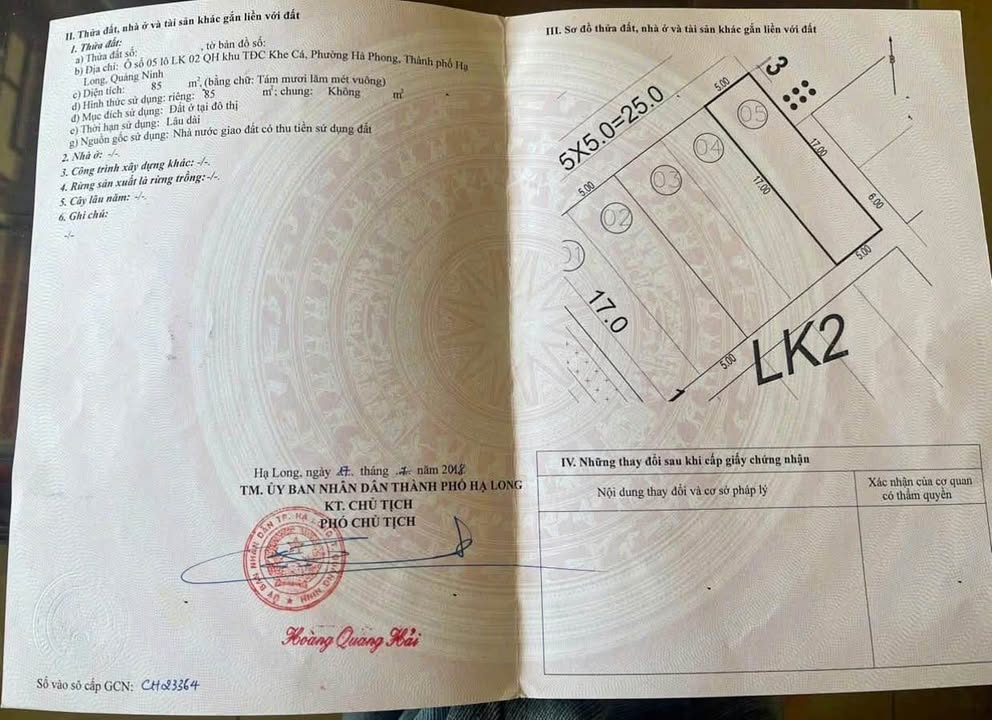 II. Thửa đất, nhà ở và tài sản khác gắn liền với đất
1. Thửa đất:
a) Thửa đất số: , tờ bản đồ số:
b) Địa chỉ: Ô số 05 lô LK 02 QH khu TĐC Khe Cá, Phường Hà Phong, Thành phố Hạ
Long, Quảng Ninh
c) Diện tích: 85 m², (bằng chữ: Tám mươi lăm mét vuông)
d) Hình thức sử dụng: riêng: 85 m²; chung: Không m²
đ) Mục đích sử dụng: Đất ở tại đô thị
e) Thời hạn sử dụng: Lâu dài
g) Nguồn gốc sử dụng: Nhà nước giao đất có thu tiền sử dụng đất
2. Nhà ở: -/-.
3. Công trình xây dựng khác: -/-.
4. Rừng sản xuất là rừng trồng: -/-.
5. Cây lâu năm: -/-.
6. Ghi chú:
-/-
Hạ Long, ngày 17. tháng .7. năm 2018
TM. ỦY BAN NHÂN DÂN THÀNH PHỐ HẠ LONG
KT. CHỦ TỊCH
PHÓ CHỦ TỊCH
Hoàng Quang Hải
Số vào sổ cấp GCN: CH23364
III. Sơ đồ thửa đất, nhà ở và tài sản khác gắn liền với đất
B
3
5X5.0=25.0
5.00
05
04
03
02
01
5.00
17.00
17.00
6.00
5.00
17.0
5.00
LK2
1
IV. Những thay đổi sau khi cấp giấy chứng nhận
Nội dung thay đổi và cơ sở pháp lý
Xác nhận của cơ quan
có thẩm quyền